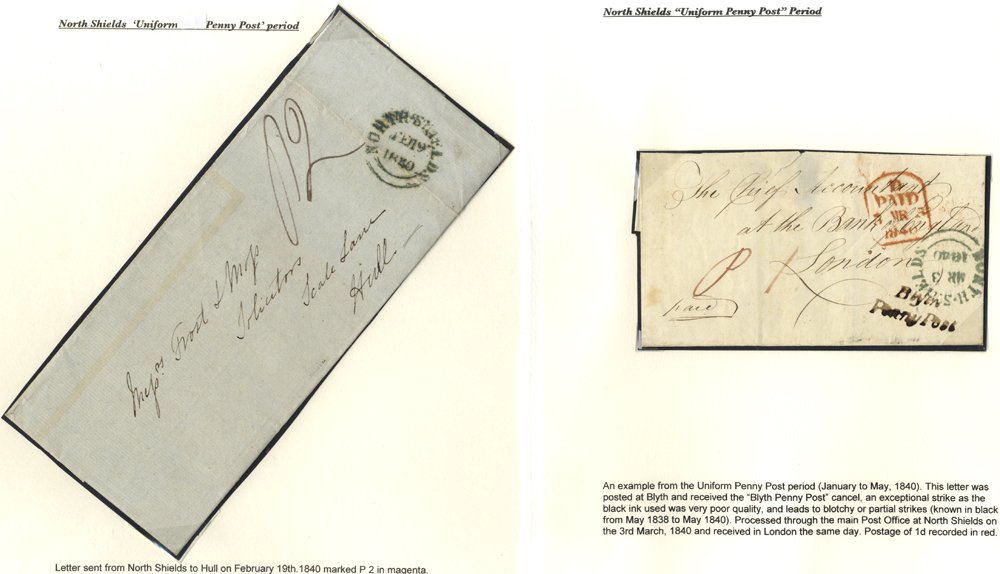 North Shields ‘Uniform Penny Post’ period
P2
NORTH-SHIELDS
FE19
1840
Messrs Frost & Moss
Solicitors
Scale Lane
Hull.
Letter sent from North Shields to Hull on February 19th.1840 marked P 2 in magenta.
North Shields “Uniform Penny Post” Period
The Chief Accountant
at the Bank of England
London
PAID
MR
1840
P 1
paid
NORTH-SHIELDS
MR 3
1840
Blyth
Penny Post
An example from the Uniform Penny Post period (January to May, 1840). This letter was
posted at Blyth and received the “Blyth Penny Post” cancel, an exceptional strike as the
black ink used was very poor quality, and leads to blotchy or partial strikes (known in black
from May 1838 to May 1840). Processed through the main Post Office at North Shields on
the 3rd March, 1840 and received in London the same day. Postage of 1d recorded in red.